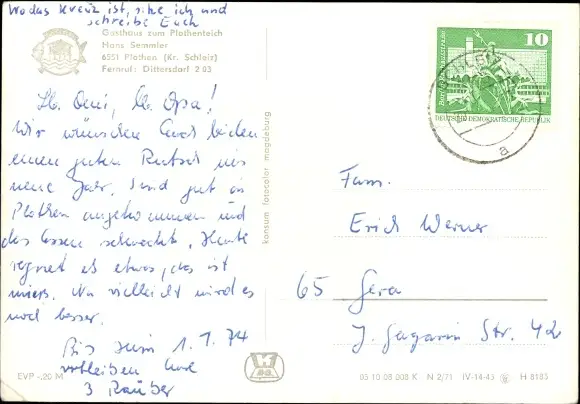 Wo das Kreuz ist, sitze ich und
schreibe Euch
Gasthaus zum Plothenteich
Hans Semmler
6551 Plothen (Kr. Schleiz)
Fernruf: Dittersdorf 2 03
Lb. Omi, lb. Opa!
Wir wünschen Euch beiden
einen guten Rutsch ins
neue Jahr. Sind gut in
Plothen angekommen und
das Essen schmeckt. Heute
regnet es etwas, das ist
mies. Na vielleicht wird es
noch besser.
Bis zum 1.1.74
verbleiben Eure
3 Räuber
EVP -,20 M
konsum fotocolor magdeburg
10
DEUTSCHE DEMOKRATISCHE REPUBLIK
a
Fam.
Erich Werner
65 Gera
J. Gagarin Str. 42
05 10 08 008 K N 2/71 IV-14-45 H 8183